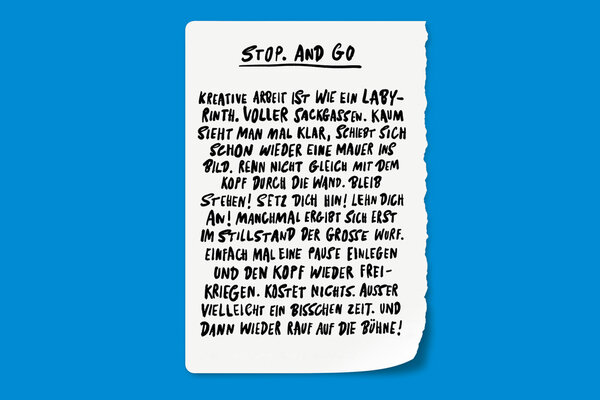 STOP. AND GO
KREATIVE ARBEIT IST WIE EIN LABY-
RINTH. VOLLER SACKGASSEN. KAUM
SIEHT MAN MAL KLAR, SCHIEBT SICH
SCHON WIEDER EINE MAUER INS
BILD. RENN NICHT GLEICH MIT DEM
KOPF DURCH DIE WAND. BLEIB
STEHEN! SETZ DICH HIN! LEHN DICH
AN! MANCHMAL ERGIBT SICH ERST
IM STILLSTAND DER GROSSE WURF.
EINFACH MAL EINE PAUSE EINLEGEN
UND DEN KOPF WIEDER FREI-
KRIEGEN. KOSTET NICHTS. AUSSER
VIELLEICHT EIN BISSCHEN ZEIT. UND
DANN WIEDER RAUF AUF DIE BÜHNE!